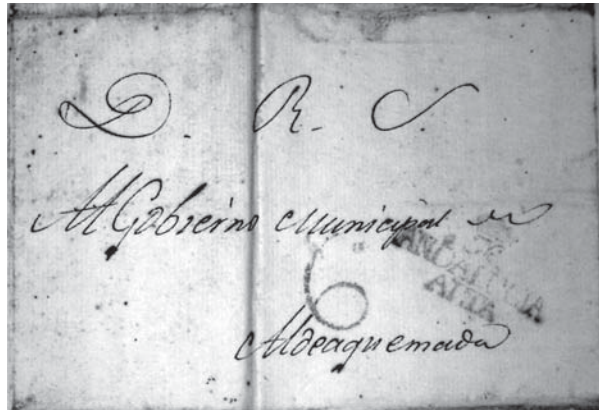 D. R. S.
Al Gobierno Municipal de
ANDALUCIA
ALTA
6
Aldeaquemada